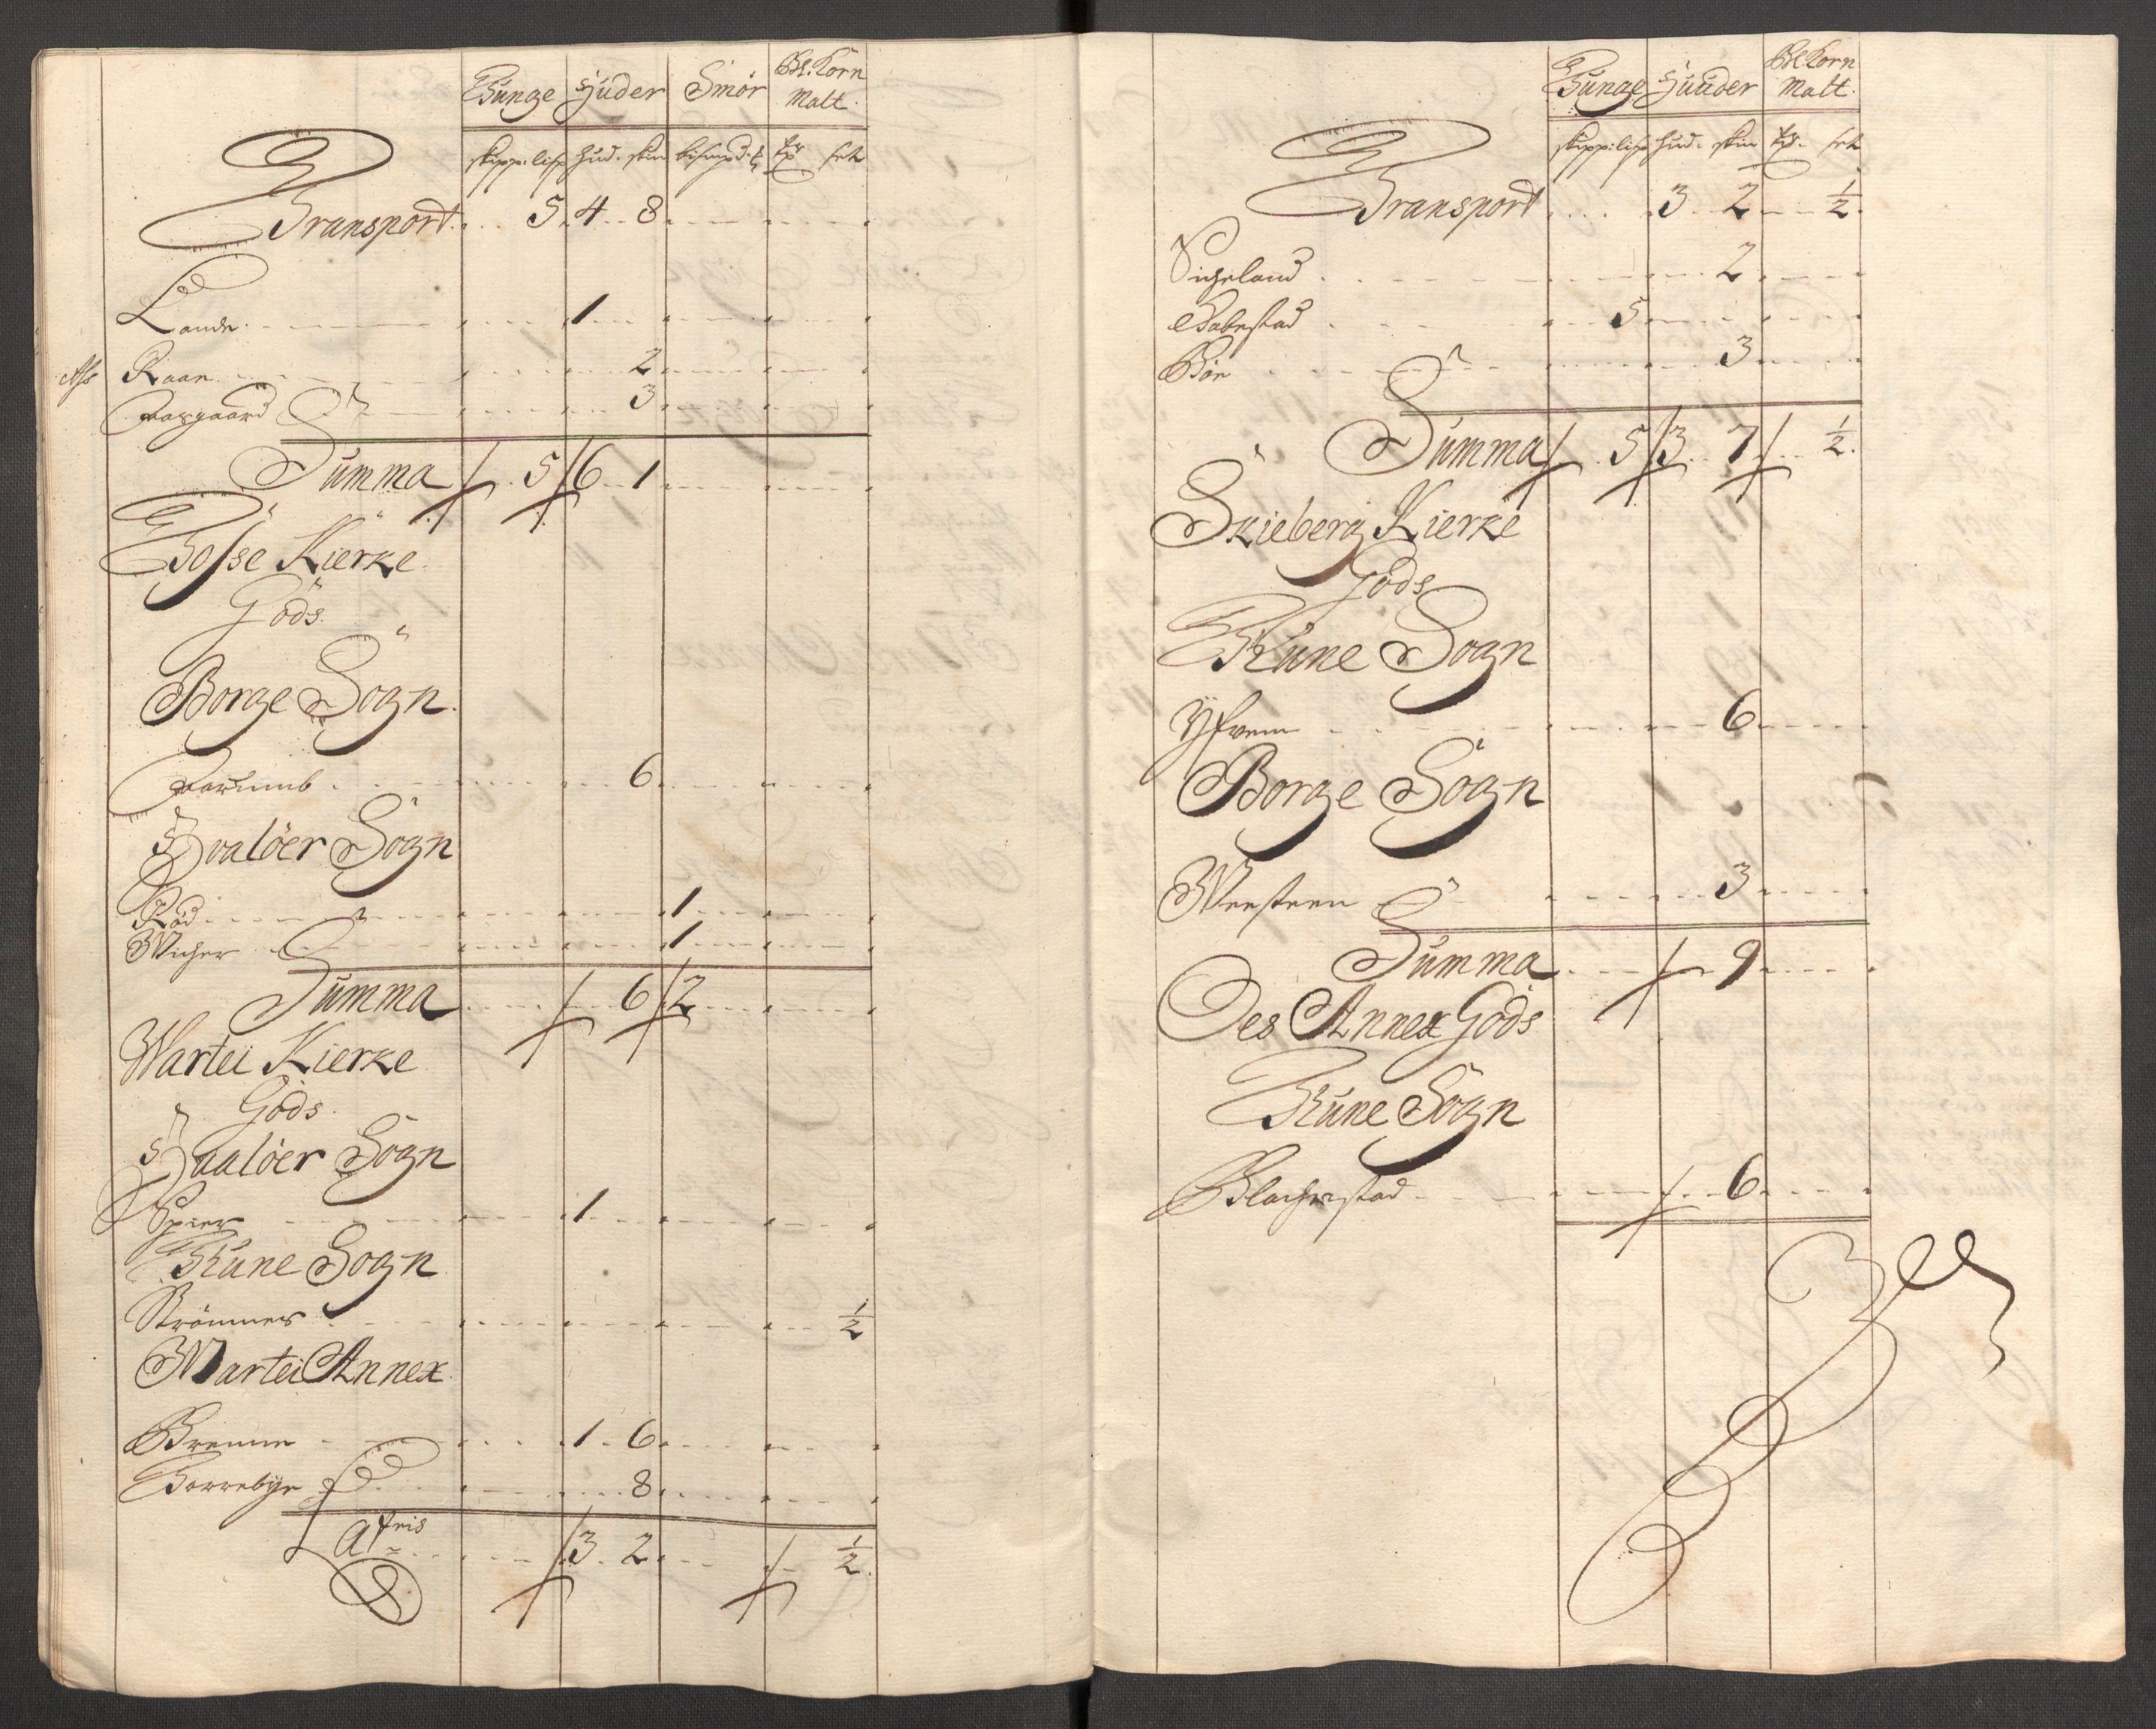 Tunge Huder Smør Bl. Korn
Malt.
skipp: lisp hud. skin bismpd. tr set
Transport. 5. 4 8
Lande 1
Raan 2
Aasgaard 3
Summa 5 6 1
Tosse Kierke
Gods.
Borge Sogn.
Torsumb 6
Hvaløer Sogn
Rød 1
Wiker 1
Summa 6 2
Wartei Kierke
Gods.
Hvaløer Sogn
Spier 1
Thune Sogn
Strømmer ½
Wartei Annex
Bremne 1 6
Torrebye 8
Lateris 3 2 ½
Tunge Huuder Bl. Korn
Malt.
skipp: lisp hud. skin tr. set
Transport 3 2 ½
Vigeland 2
Tabestad 5
Bøe 3
Summa 5 3 7 ½
Skieberg Kierke
Gods
Thune Sogn
Yfrem 6
Borge Sogn
Weesteen 3
Summa 9
Des Annex Gods
Thune Sogn
Blachestad 6